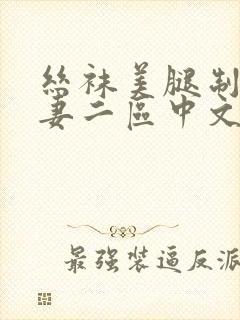 絲袜美腿制
妻二區中文
最强装逼反派